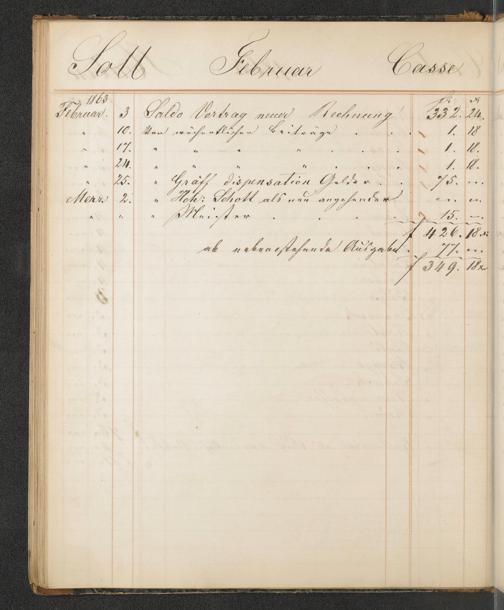 Soll Februar Casse
1863
Februar. 3 Saldo Vortrag neuer Rechnung 332. 24.
" 10. Von wöchentlichen Beiträge . . 1. 18
" 17. " " " " . . 1. 18.
" 24. " " " " . . 1. 18.
" 25. " Gräff dispensation Gelder . . 75. —
Merz 2. " Joh: Schott als neu angehender — —
" " " Meister . . . . 15. —
f 426. 18 x
ab nebenstehende Ausgaben . 77. —
f 349. 18 x